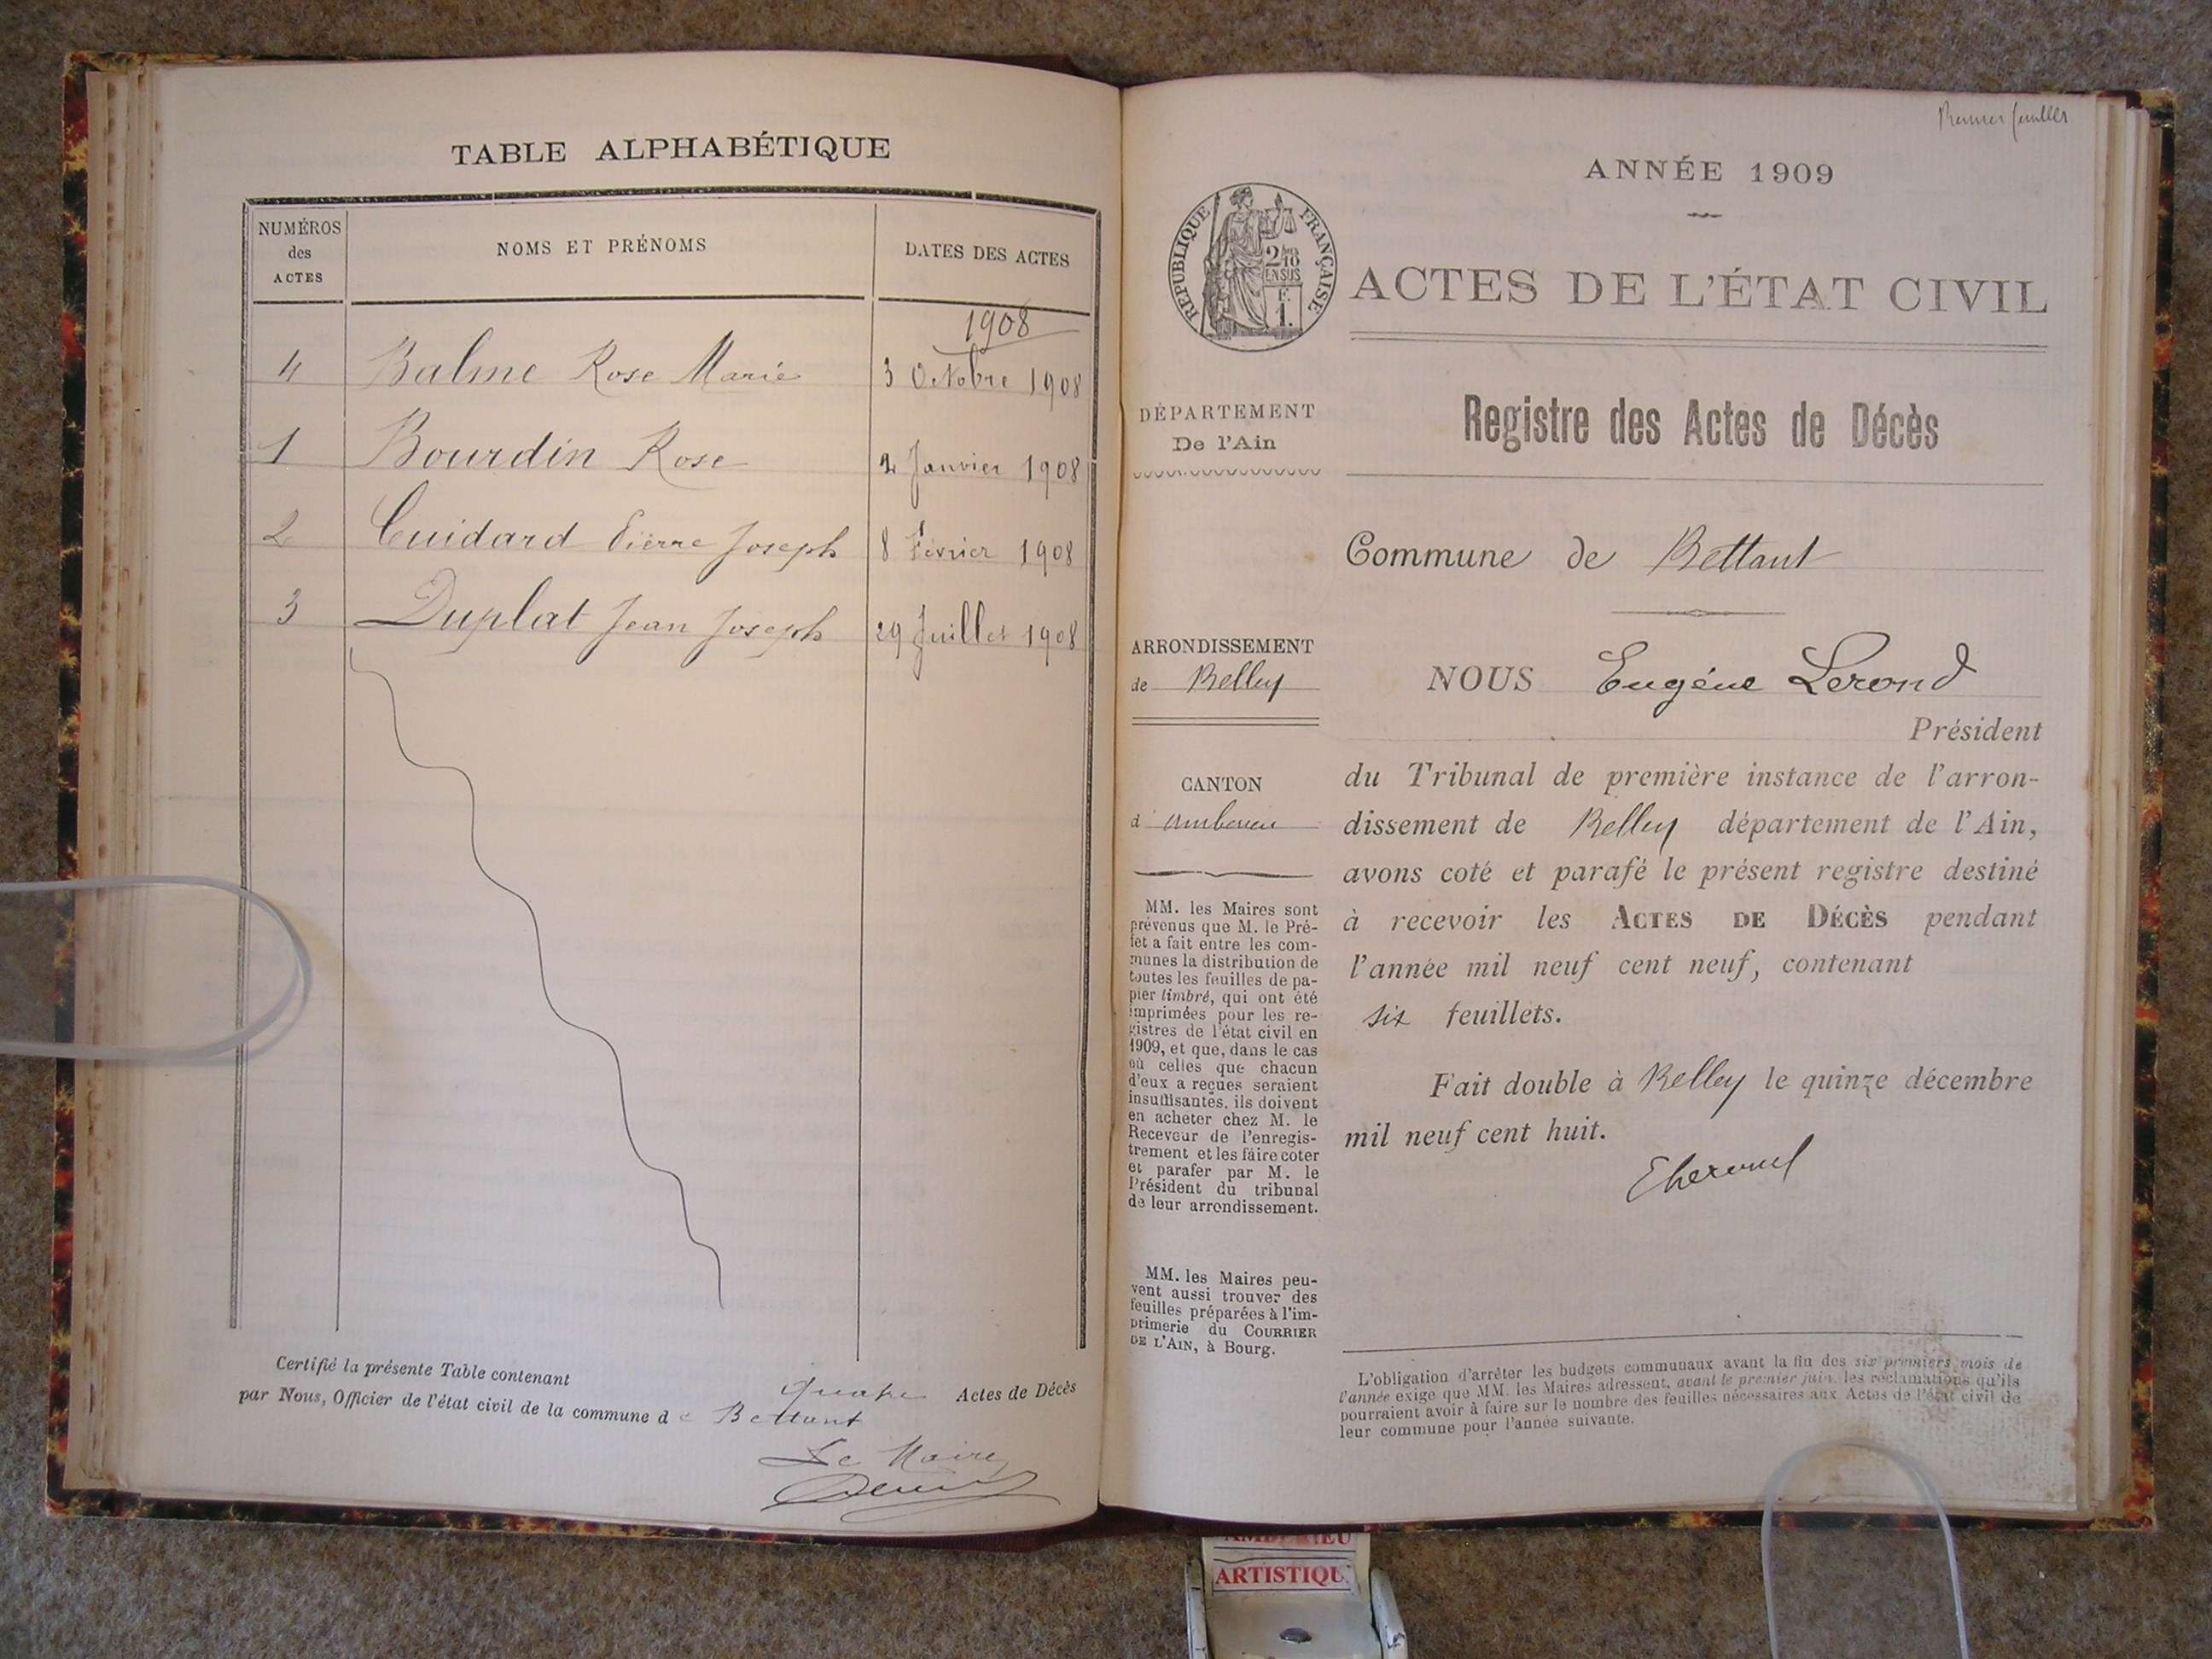 TABLE ALPHABÉTIQUE
NUMÉROS
des
ACTES
NOMS ET PRÉNOMS
DATES DES ACTES
1908
4 Balme Rose Marie 3 Octobre 1908
1 Bourdin Rose 2 Janvier 1908
2 Cuidard Pierre Joseph 8 Février 1908
3 Duplat Jean Joseph 29 Juillet 1908
Certifié la présente Table contenant quatre Actes de Décès
par Nous, Officier de l'état civil de la commune de Bettant
Le Maire
Premier feuillet
ANNÉE 1909
RÉPUBLIQUE FRANÇAISE
ACTES DE L'ÉTAT CIVIL
DÉPARTEMENT
De l'Ain
Registre des Actes de Décès
Commune de Bettant
ARRONDISSEMENT
de Belley
CANTON
d'Ambérieu
MM. les Maires sont
prévenus que M. le Pré-
fet a fait entre les com-
munes la distribution de
toutes les feuilles de pa-
pier timbré, qui ont été
imprimées pour les re-
gistres de l'état civil en
1909, et que, dans le cas
où celles que chacun
d'eux a reçues seraient
insuffisantes, ils doivent
en acheter chez M. le
Receveur de l'enregis-
trement et les faire coter
et parafer par M. le
Président du tribunal
de leur arrondissement.
MM. les Maires peu-
vent aussi trouver des
feuilles préparées à l'im-
primerie du COURRIER
DE L'AIN, à Bourg.
NOUS Eugène Lerond
Président
du Tribunal de première instance de l'arron-
dissement de Belley département de l'Ain,
avons coté et parafé le présent registre destiné
à recevoir les ACTES DE DÉCÈS pendant
l'année mil neuf cent neuf, contenant
six feuillets.
Fait double à Belley le quinze décembre
mil neuf cent huit.
L'obligation d'arrêter les budgets communaux avant la fin des six premiers mois de
l'année exige que MM. les Maires adressent, avant le premier juin, les réclamations qu'ils
pourraient avoir à faire sur le nombre des feuilles nécessaires aux Actes de l'état civil de
leur commune pour l'année suivante.
ARTISTIQU